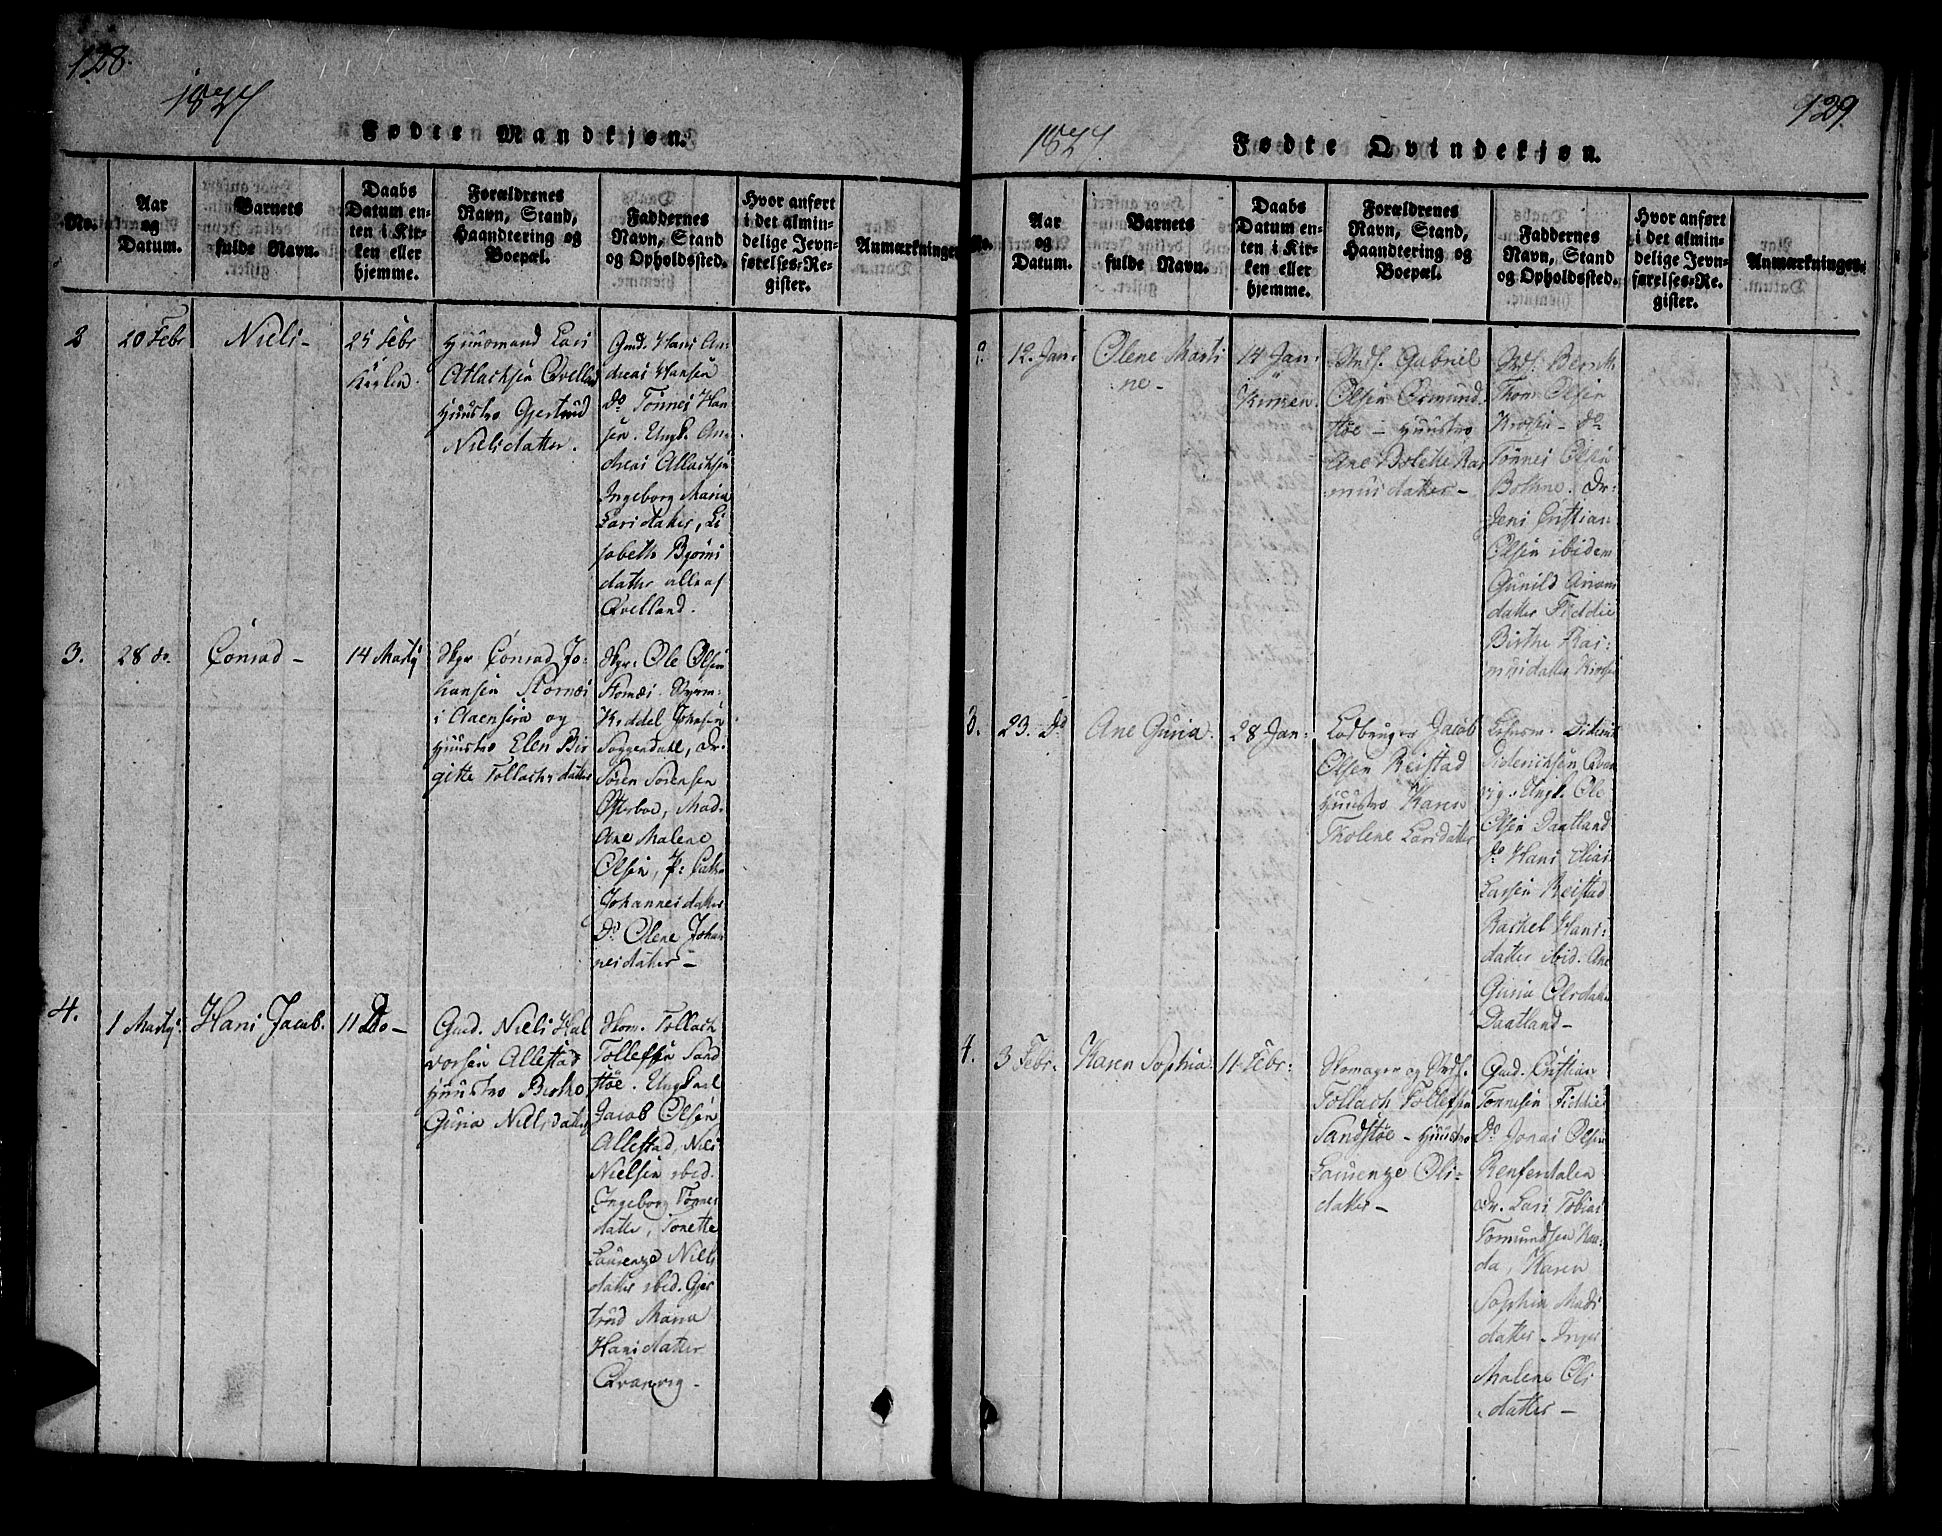 128.
1827
Fødte Mandkjøn.
No.
Aar
og
Datum.
Barnets
fulde Navn.
Daabs
Datum en-
ten i Kir-
ken eller
hjemme.
Forældrenes
Navn, Stand,
Haandtering og
Boepæl.
Faddernes
Navn, Stand
og Opholdssted.
Hvor anført
i det almin-
delige Jevn-
førelses-Re-
gister.
Anmærkninger.
2
20 Febr
Niels -
25 Febr
Huusmand Lars
Atlachsen Qvelland
Huustro Gjertrud
Nielsdatter.
Gmd. Hans An-
dreas Hansen
do Tönnes Han-
sen. Ungk. An-
dreas Atlachsen
Ingeborg Maria
Larsdatter, Li
sabeth Byörns
datter alle af
Qvelland.
3.
28 do.
Conrad -
14 Martj
Conrad Jo-
hansen
i Aaensira og
Huustro Elen Bir
gitte Tollachsdatter
Ole Olsen
Kiddel Johnsen
Soggendahl, Dr.
Sören Sörensen
Osterboe, Mad.
Ane Malene
Olsen, P: Cath.
Johannesdatter
Do Olene Johan
nesdatter -
4.
1 Martj.
Hans Jacob.
11 Do -
Gmd. Niels Hal
vorsen Allestad
Huustro Birthe
Guria Nielsdatter
Tollach
Tollefsen Sand
stöe. Ungkarl
Jacob Olsen
Allestad, Niels
Nielsen ibid.
Ingeborg Tönnes
datter, Tonette
Laurenze Niels
datter ibid. Gjer
trud Maria
Hansdatter
Qvanvig -
129.
1827.
Fødte Qvindekjøn.
No.
Aar
og
Datum.
Barnets
fulde Navn.
Daabs
Datum en-
ten i Kir-
ken eller
hjemme.
Forældrenes
Navn, Stand,
Haandtering og
Boepæl.
Faddernes
Navn, Stand
og Opholdssted.
Hvor anført
i det almin-
delige Jevn-
førelses-Re-
gister.
Anmærkninger.
2.
12. Jan.
Olene Marti
ne -
14 Jan:
Kirken.
Gabriel
Olsen Osmund
stöe - Huustro
Ane Bolethe Ras
musdatter -
Thom Olsen
do
Tönnes Olsen
Bothne. Dr:
Jens Cristian
Olsen ibidem
Gunild
datter Fiddie
Birthe Ras:
musdatter
3.
23. Do
Ane Guria.
28 Jan:
Jacob
Olsen Reistad
Huustro Karen
Tholene Larsdatter
Didrik
Diderichsen Qvan
vig. Ungk. Ole
Olsen Daatland
do Hans Elias
Larsen Reistad
Rachel Hans:
datter ibid. Ane
Guria Olsdatter
Daatland -
4.
3 Febr.
Karen Sophia.
11 Febr:
Skomager og
Tollach Tollefsen
Sandstöe - Huustro
Laurenze Ols-
datter -
Gmd. Cristian
Tönnesen Fiddie
Do Jonas Olsen
Renfendalen
Dr. Lars Tobias
Tormundsen
Karen
Sophia Mads
datter. Inger
Malene Ols
datter -